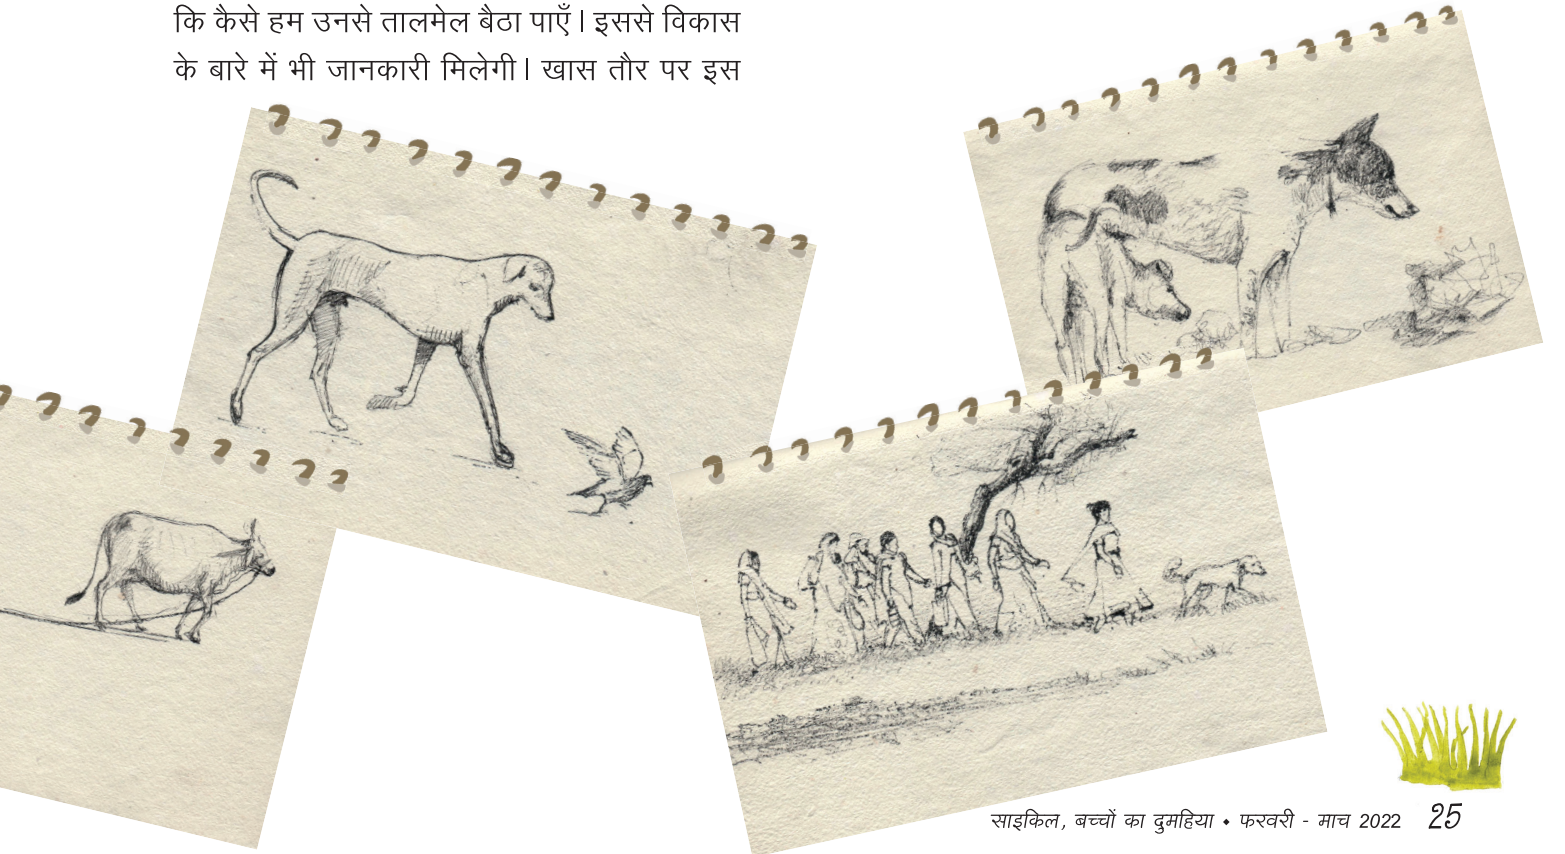 कि कैसे हम उनसे तालमेल बैठा पाएँ। इससे विकास
के बारे में भी जानकारी मिलेगी। खास तौर पर इस
साइकिल, बच्चों का दुमहिया ⬩ फरवरी - माच 2022 25